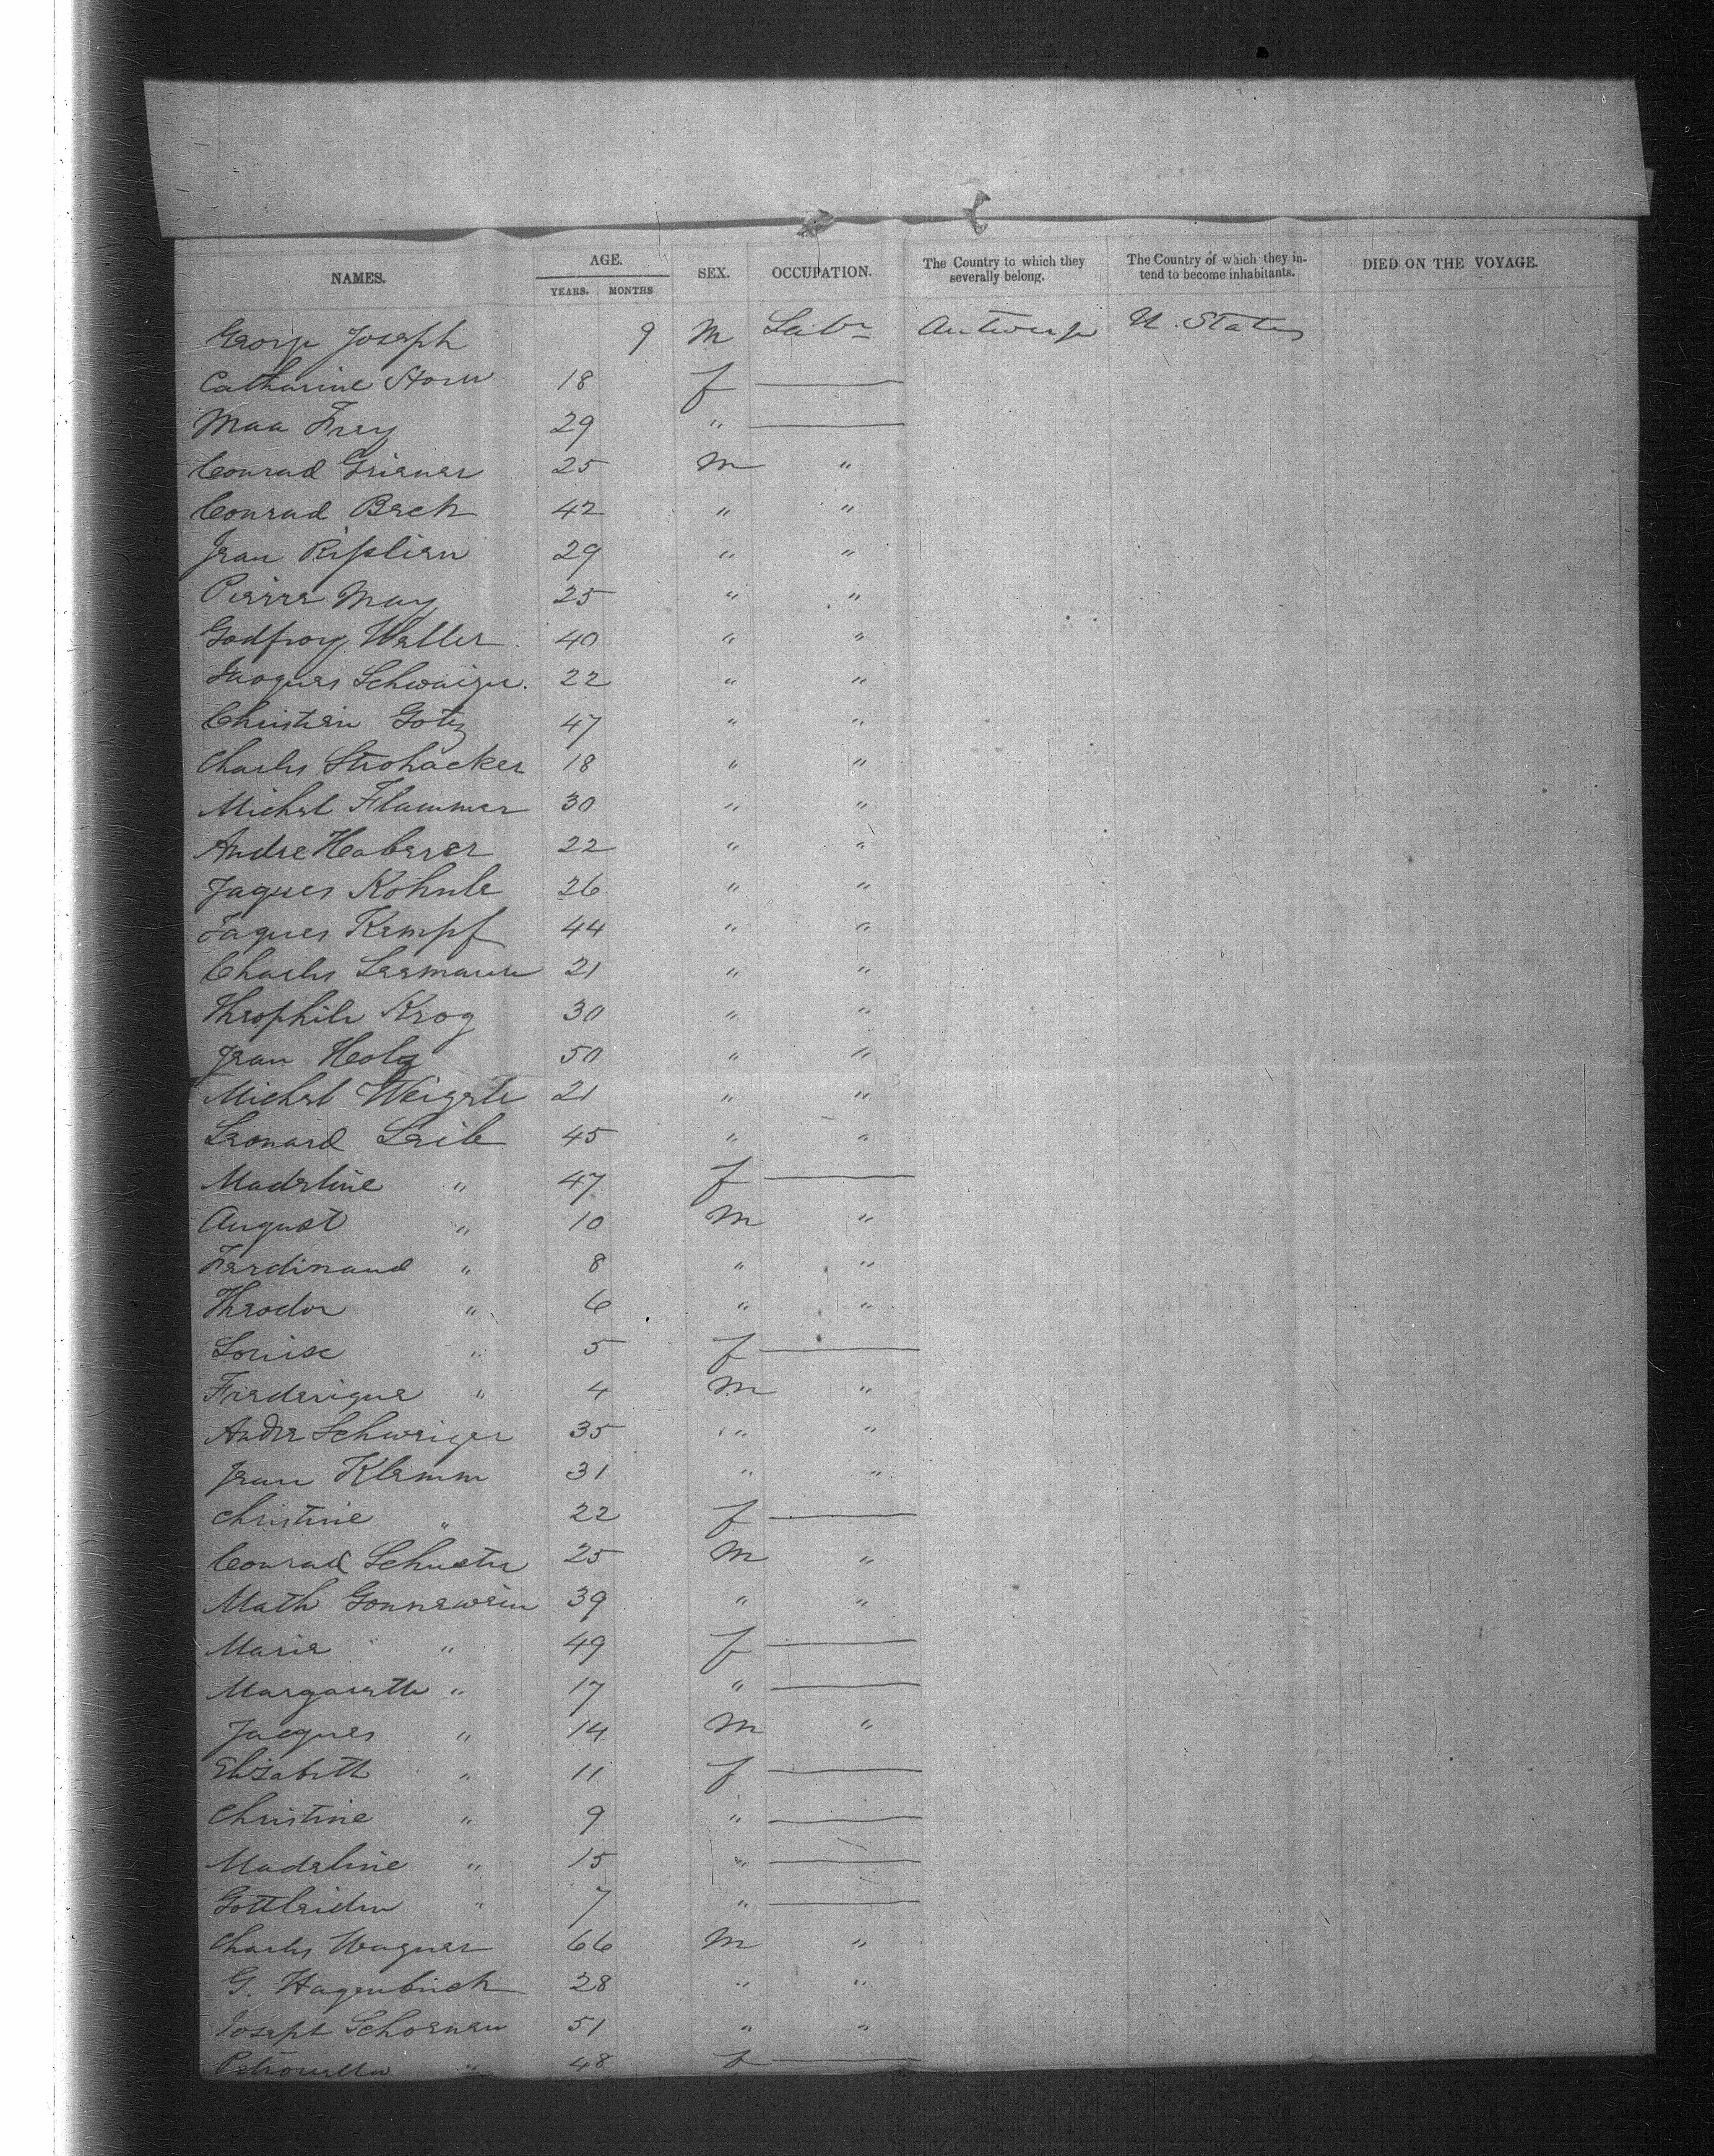 NAMES. AGE. SEX. OCCUPATION. The Country to which they severally belong. The Country of which they intend to become inhabitants. DIED ON THE VOYAGE.
YEARS. MONTHS
George Joseph 9 M Labr Antwerp U. States
Catharine Storu 18 f ——
Maa Frey 29 " ——
Conrad Griener 25 M "
Conrad Beck 42 " "
Jean Risslien 29 " "
Pierre May 25 " "
Godfroy Weller 40 " "
Jacques Schwaizer. 22 " "
Christian Gotz 47 " "
Charles Strohacker 18 " "
Michel Flammer 30 " "
Andre Haberer 22 " "
Jaques Kohnle 26 " "
Jaques Kempf 44 " "
Charles Leemann 21 " "
Theophile Krog 30 " "
Jean Holz 50 " "
Michel Weigele 21 " "
Leonard Leile 45 " "
Madeline " 47 f ——
August " 10 M "
Ferdinand " 8 " "
Theodor " 6 " "
Louise " 5 f ——
Frederique " 4 M "
Andre Schweiger 35 " "
Jean Klemm 31 " "
Christine " 22 f ——
Conrad Schuster 25 M "
Math Gonnewein 39 " "
Marie " 49 f ——
Margareth " 17 " ——
Jacques " 14 M "
Elizabeth " 11 f ——
Christine " 9 " ——
Madeline " 15 " ——
Gottleiden " 7 " ——
Charles Wagner 66 M "
G. Hagenbuch 28 " "
Joseph Schoenen 51 " "
Petronella " 48 f ——